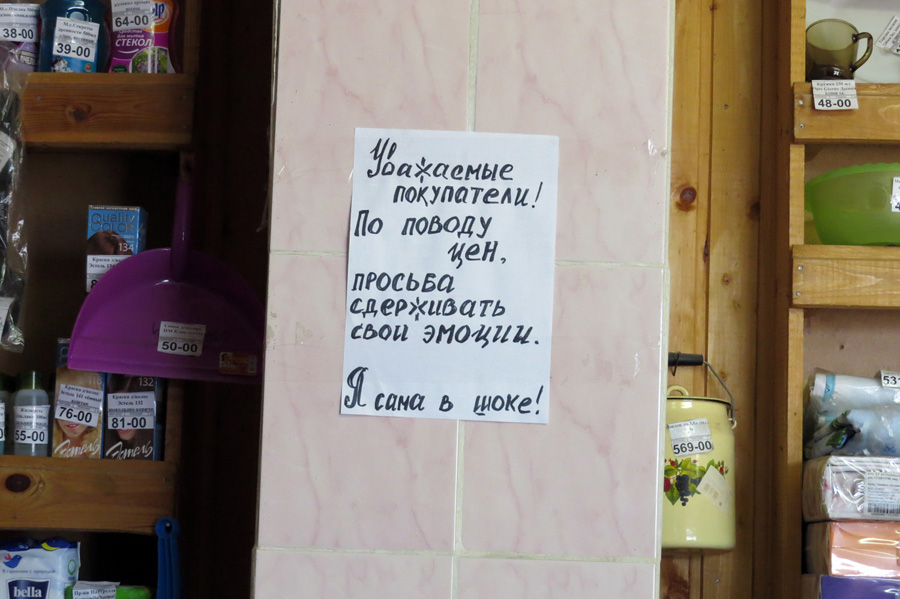 38-00
39-00
64-00
СТЕКОЛ
Уважаемые
покупатели!
По поводу
цен,
просьба
сдерживать
свои эмоции.
Я сама в шоке!
48-00
Quality
Color
134
50-00
132
76-00
81-00
Эстель
55-00
569-00
531
bella